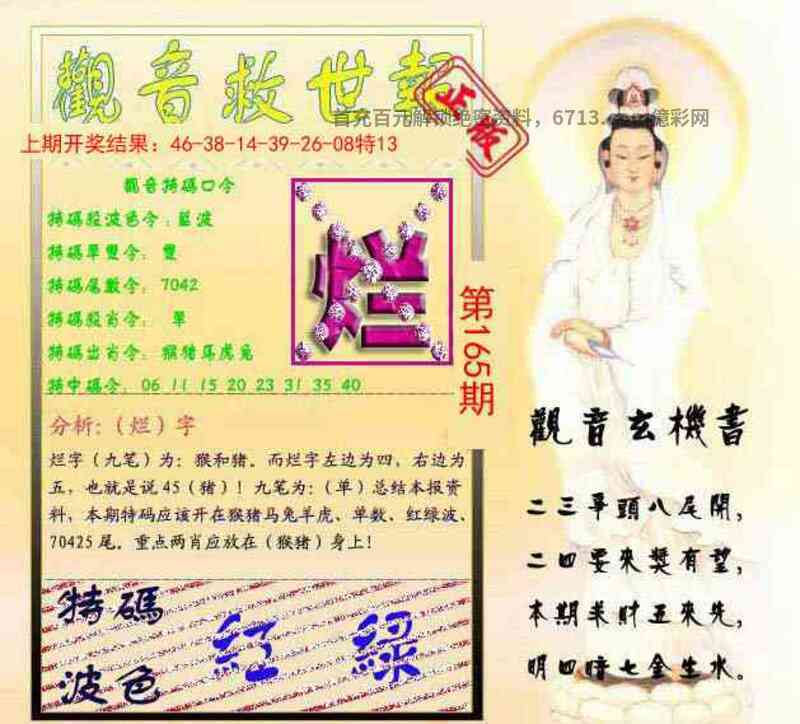 觀音救世報
正版
首充百元解锁绝密资料，6713.com億彩网
上期开奖结果：46-38-14-39-26-08特13
觀音特碼口令
特碼殺波色令：藍波
特碼單雙令： 雙
特碼尾數令： 7042
特碼殺肖令： 單
特碼出肖令： 猴猪馬虎兔
特中碼令： 06 11 15 20 23 31 35 40
烂
第165期
分析:（烂）字
烂字（九笔）为：猴和猪。而烂字左边为四，右边为
五，也就是说45（猪）！九笔为：（单）总结本报资
料，本期特码应该开在猴猪马兔羊虎、单数、红绿波、
70425尾。重点两肖应放在（猴猪）身上！
特碼
波色
紅 綠
觀音玄機書
二三爭頭八尾開，
二四要來獎有望，
本期求財五來先，
明四暗七金生水。